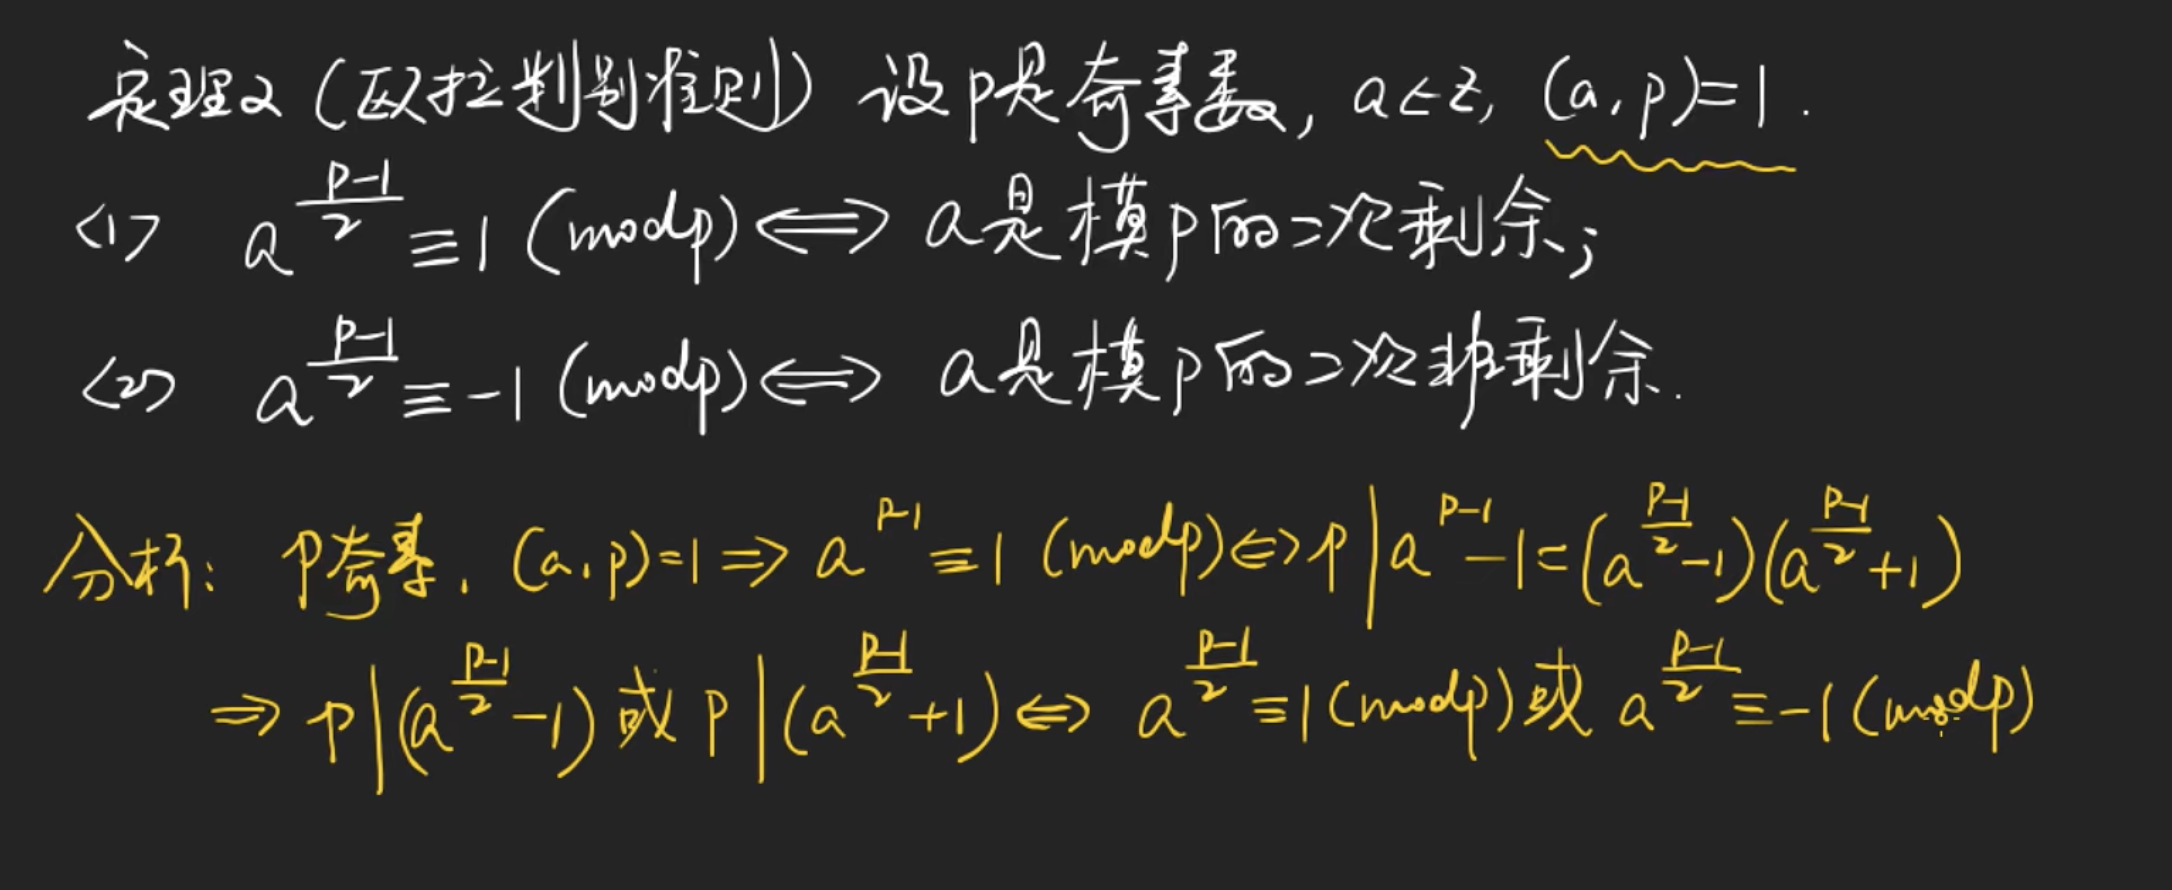 定理2（欧拉判别准则）设p是奇素数, a∈Z, (a,p)=1.
<1> a^{\frac{p-1}{2}} ≡ 1 (mod p) ⟺ a是模p的二次剩余;
<2> a^{\frac{p-1}{2}} ≡ -1 (mod p) ⟺ a是模p的二次非剩余.
分析: p奇素, (a,p)=1 ⟹ a^{p-1} ≡ 1 (mod p) ⟺ p | a^{p-1}-1 = (a^{\frac{p-1}{2}}-1)(a^{\frac{p-1}{2}}+1)
⟹ p | (a^{\frac{p-1}{2}}-1) 或 p | (a^{\frac{p-1}{2}}+1) ⟺ a^{\frac{p-1}{2}} ≡ 1 (mod p) 或 a^{\frac{p-1}{2}} ≡ -1 (mod p)